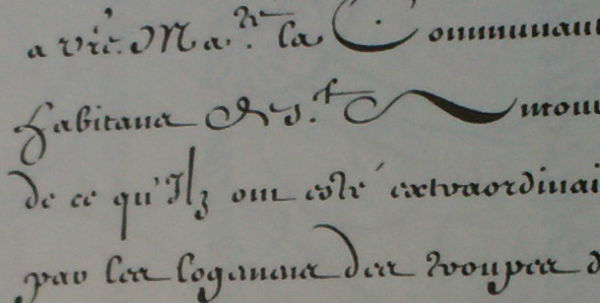 a v're. Ma.té la Communaut
habitans de S.t Antoni
de ce qu'Ilz ont esté extraordinai
par les logemens des troupes d